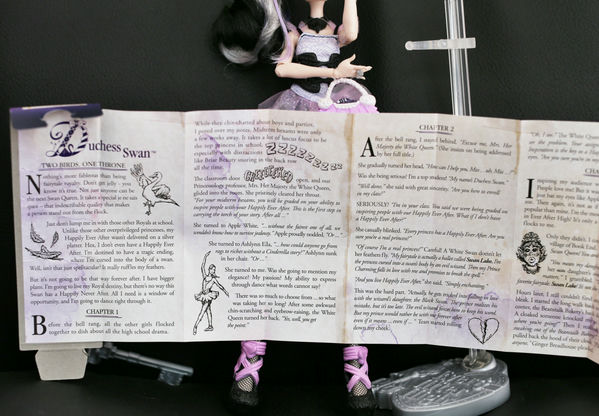 Duchess Swan™
TWO BIRDS. ONE THRONE.
Nothing's more fabulous than being
fairytale royalty. Don't get jelly – you
know it's true. Not just anyone can be
the next Swan Queen. It takes a special je ne sais
quoi – that indescribable quality that makes
a person stand out from the flock.
Just don't lump me in with those other Royals at school.
Unlike those other overprivileged princesses, my
Happily Ever After wasn't delivered on a silver
platter. Hex, I don't even have a Happily Ever
After. I'm destined to have a tragic ending,
where I'm cursed into the body of a swan.
Well, isn't that just spelltacular? It really ruffles my feathers.
But it's not going to be that way forever after. I have bigger
plans. I'm going to live my Royal destiny, but there's no way this
Swan has a Happily Never After. All I need is a window of
opportunity, and I'm going to dance right through it.
CHAPTER 1
Before the bell rang, all the other girls flocked
together to dish about all the high school drama.
While they chit-chatted about boys and parties,
I pored over my notes. Midterm hexams were only
a few weeks away. It takes a lot of hocus focus to
be the top princess in school,
especially with distractions
like Briar Beauty snoring in the back row
all the time.
ZZZZZZZZZ
The classroom door
open, and our
Princessology professor, Mrs. Her Majesty the White Queen,
glided into the room. She pristinely cleared her throat.
"For your midterm hexams, you will be graded on your ability to
inspire people with your Happily Ever After. This is the first step in
carrying the torch of your story. After all…"
She turned to Apple White, "…without the fairest one of all, we
wouldn't have a certain jealousy." Apple proudly nodded. "Or…"
She turned to Ashlynn Ella, "… how could anyone go from
rags to riches without a Cinderella story?" Ashlynn sunk
in her chair. "Or…"
She turned to me. Was she going to mention my
elegance? My passion? My ability to express
through dance what words cannot say?
There was so much to choose from… so what
was taking her so long? After some awkward
chin-scratching and eyebrow-raising, the White
Queen turned her back. "Yes, well, you get
the point."
CHAPTER 2
After the bell rang, I stayed behind. "Excuse me, Mrs. Her
Majesty the White Queen." (She insists on being addressed
by her full title.)
She gradually turned her head, "How can I help you, Miss… uh Miss…"
Was she being serious? I'm a top student! "My name? Duchess Swan."
"Well done," she said with great sincerity. "Are you here to enroll
in my class?"
SERIOUSLY? "I'm in your class. You said we were being graded on
inspiring people with our Happily Ever After. What if I don't have
a Happily Ever After?"
She casually blinked. "Every princess has a Happily Ever After. Are you
sure you're a real princess?"
"Of course I'm a real princess!" Careful! A White Swan doesn't let
her feathers fly. "My fairytale is actually a ballet called Swan Lake. The
princess is turned into a swan's body by an evil wizard. Then my Prince
Charming falls in love with me and promises to break the spell."
"And you live Happily Ever After," she said, "Simply enchanting."
This was the hard part. "Actually, he gets tricked into falling in love
with the wizard's daughter, the Black Swan. The prince realizes his
mistake, but it's too late. The evil wizard forces him to keep his word.
But my prince would rather be with me forever after
even if it means … even if…" Tears started rolling
down my cheek.
"Oh, I am." The White Queen
Are you sure you're in
I